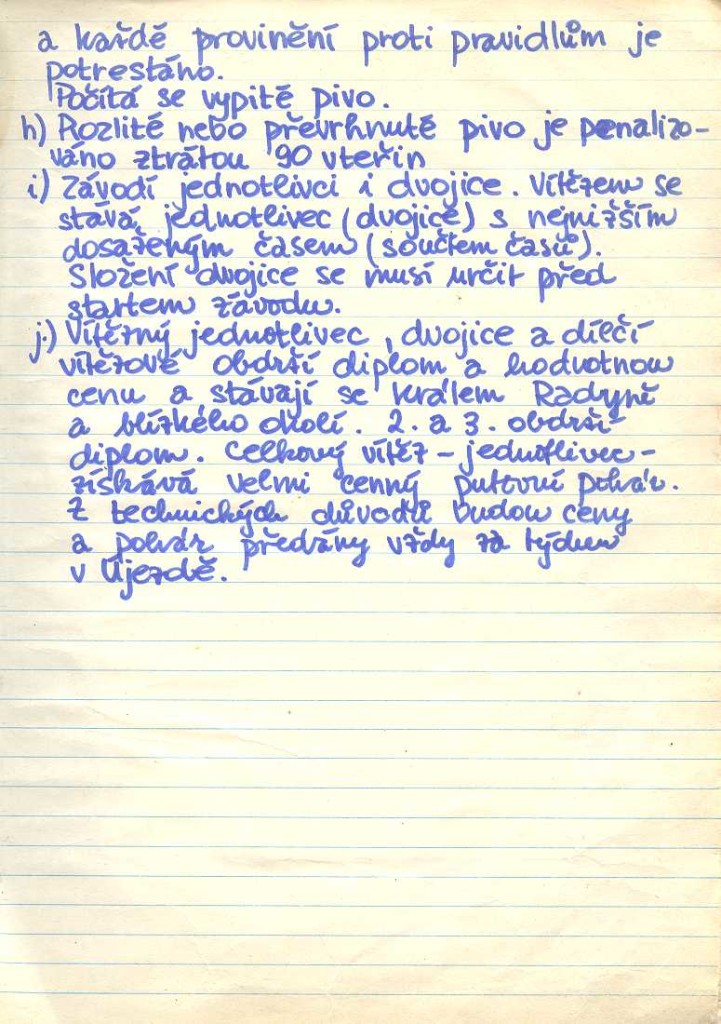 a každé provinění proti pravidlům je
potrestáno.
Počítá se vypité pivo.
h) Rozlité nebo převrhnuté pivo je penalizo-
váno ztrátou 90 vteřin
i) Závodí jednotlivci i dvojice. Vítězem se
stává jednotlivec (dvojice) s nejnižším
dosaženým časem (součtem časů).
Složení dvojice se musí určit před
startem závodu.
j.) Vítězný jednotlivec, dvojice a dílčí
vítězové obdrží diplom a hodnotnou
cenu a stávají se králem Radyně
a blízkého okolí. 2. a 3. obdrží
diplom. Celkový vítěz - jednotlivec -
získává velmi cenný putovní pohár.
Z technických důvodů budou ceny
a pohár předány vždy za týden
v Újezdě.